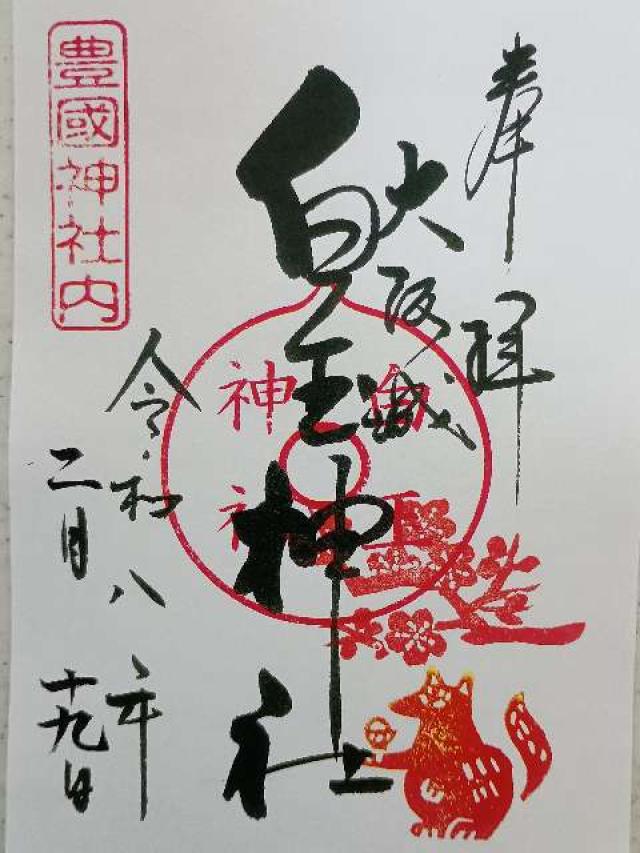 奉拝
大阪城
白玉神社
白玉
神社
豊國神社内
令和八年
二月十九日